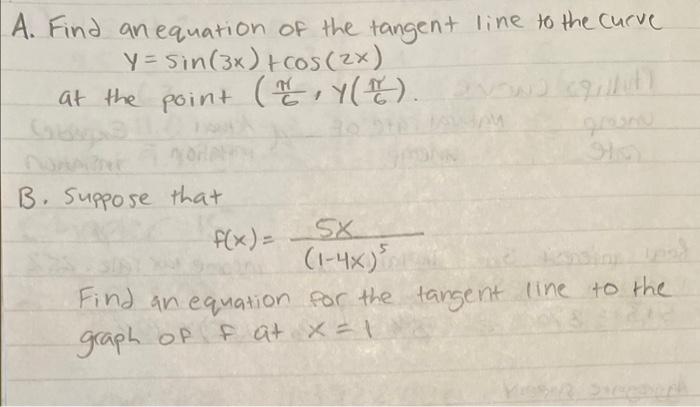 A. Find an equation of the tangent line to the curve
y = sin(3x) + cos(2x)
at the point (π/6, y(π/6).
B. Suppose that
f(x) = 5x/(1-4x)^5
Find an equation for the tangent line to the
graph of f at x = 1